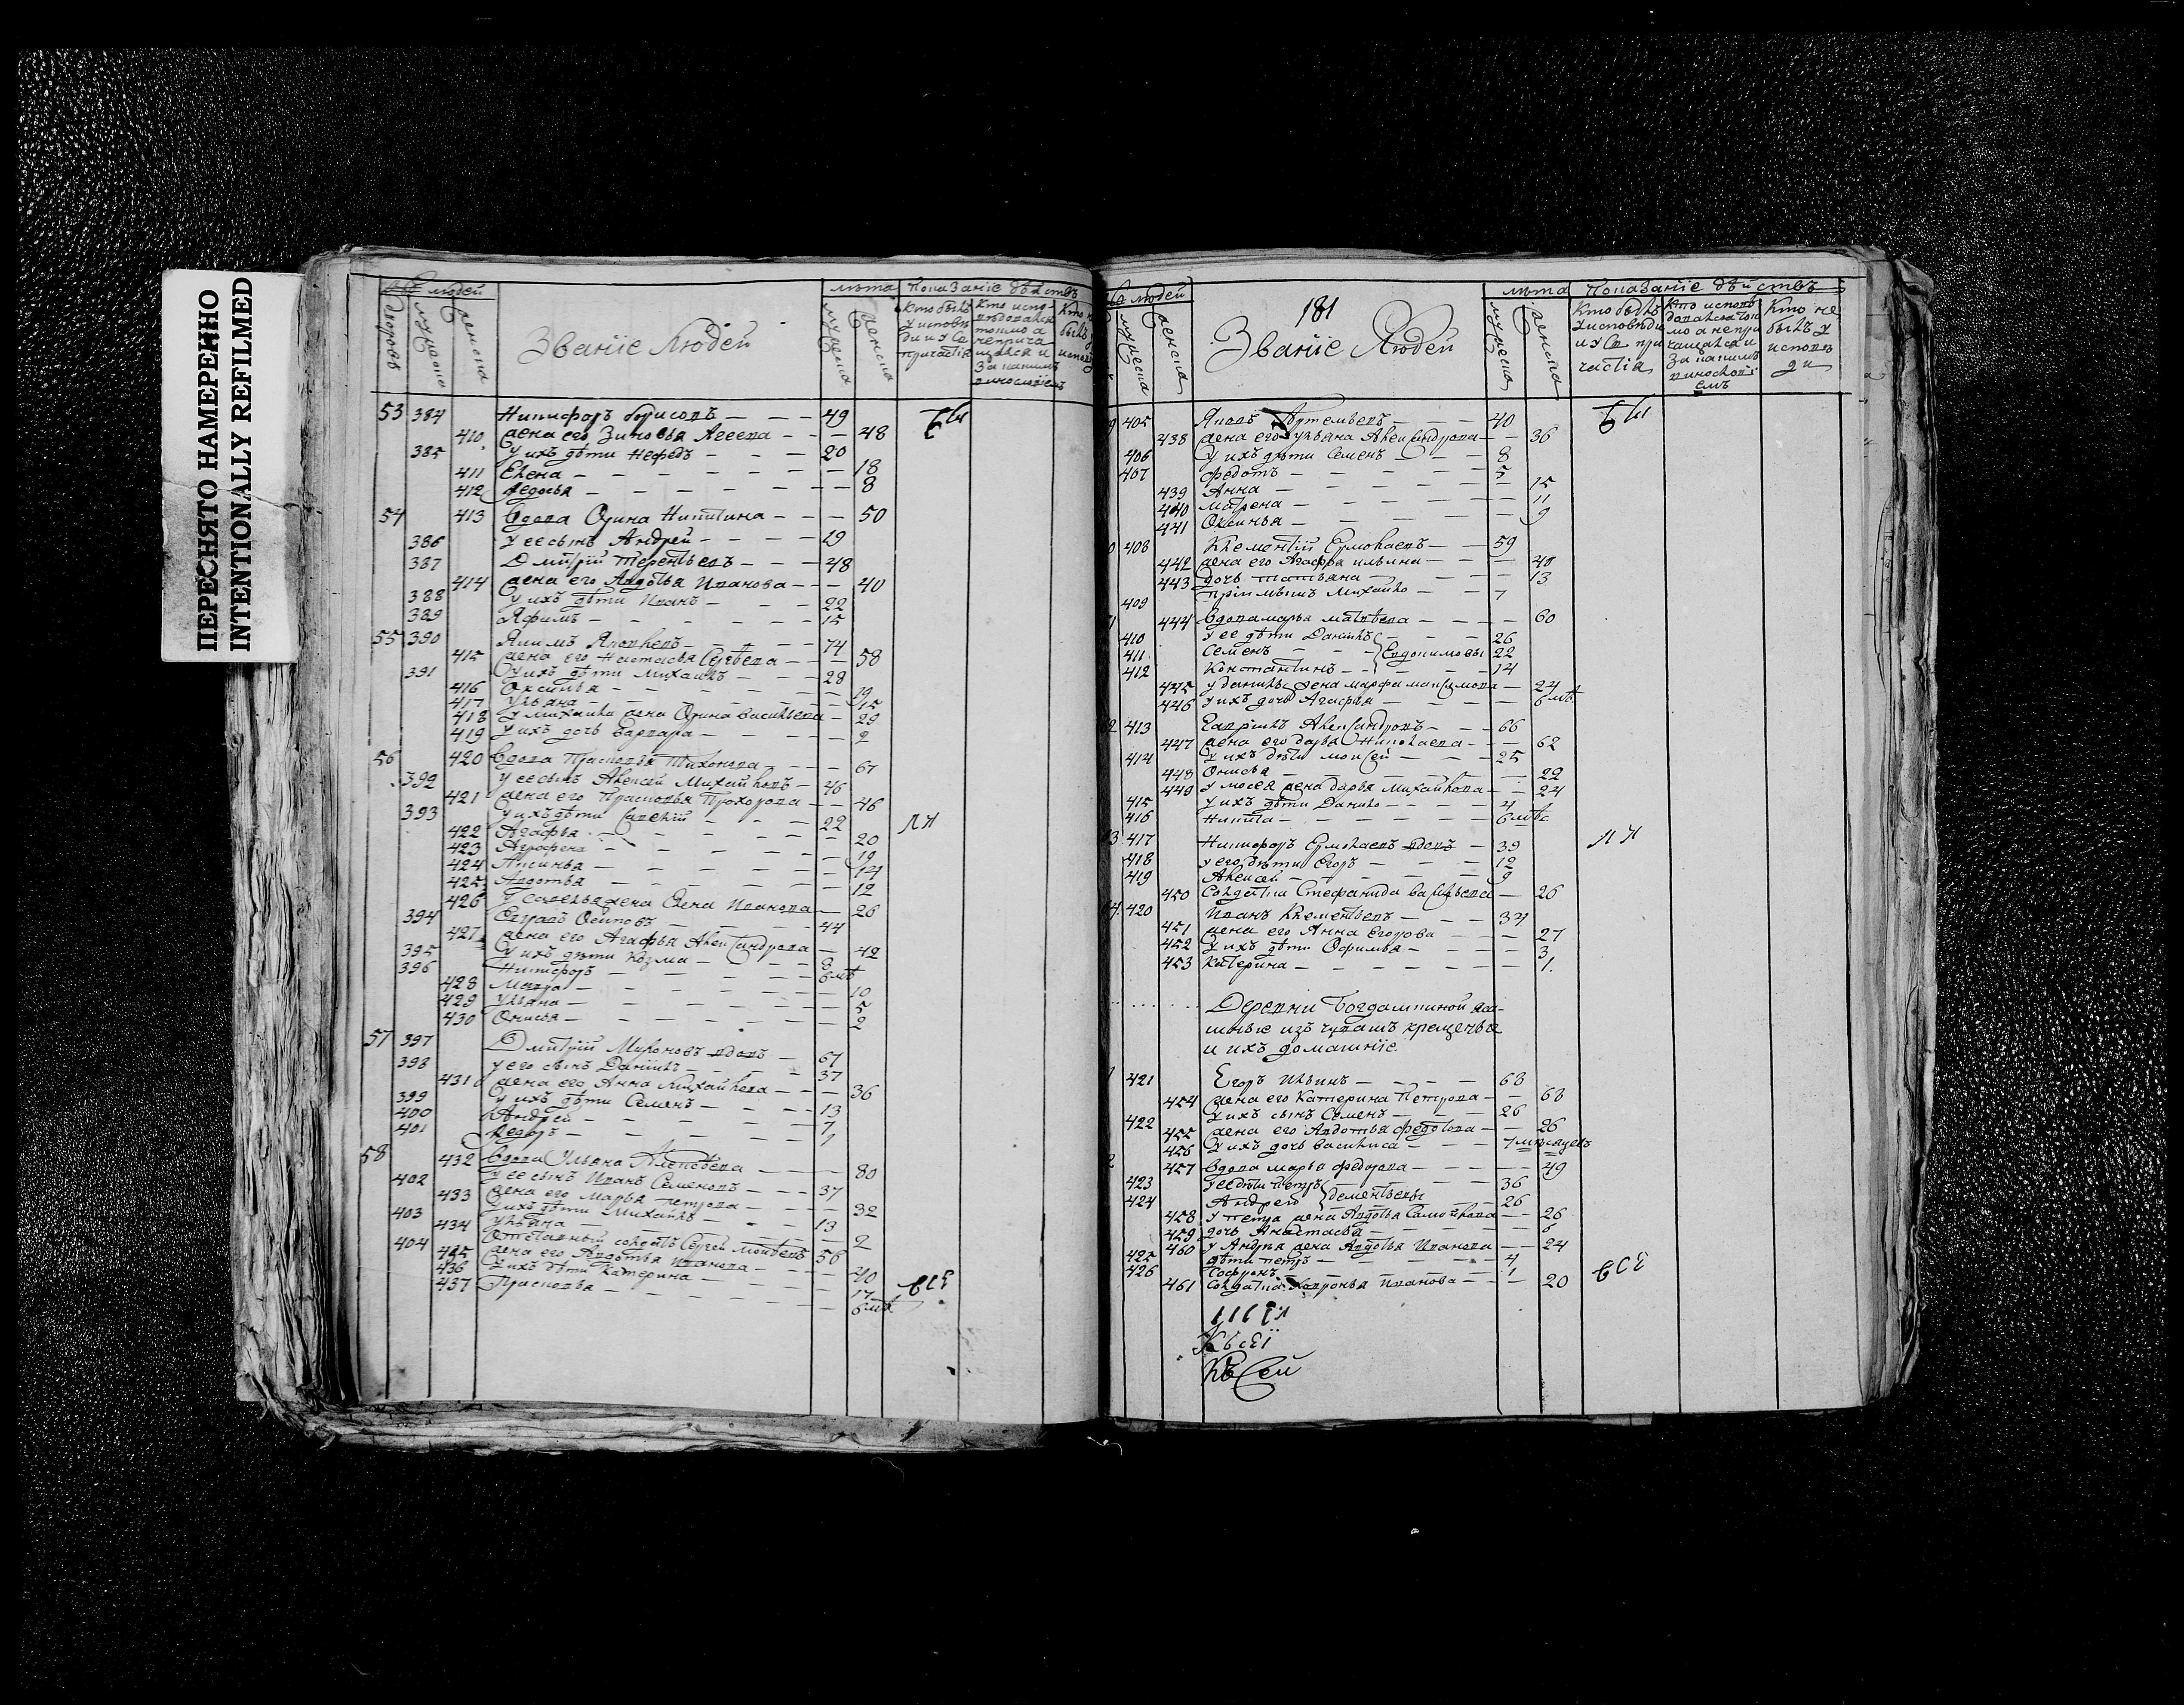 ПЕРЕСНЯТО НАМЕРЕННО
INTENTIONALLY REFILMED
людей
лѣта показанїе дѣйствъ
дворовъ мужеска женска
Званїе людей
мужеска женска
кто былъ у исповѣди и у св причастїя
53 384 Никифоръ борисовъ 49 бы
410 жена его Зиновья Агеева 48
385 у ихъ дѣти Нефедъ 20
411 Елена 18
412 Ѳедосья 8
54 413 вдова Орина Никитина 50
386 у ее сынъ Андрей 19
387 Дмитрїй Терентьевъ 48
414 жена его Авдотья Иванова 40
388 у ихъ дѣти Иванъ 22
389 Яфимъ 15
55 390 Якимъ Яковлевъ 74
415 жена его Настасья Сергѣева 58
391 у ихъ дѣти михаилъ 28
416 Оксинья 19
417 Ульяна 15
418 у михаила жена Орина васильева 29
419 у ихъ дочь варвара 2
56 420 вдова Прасковья Тихонова 67
392 у ее сынъ Алексей Михайловъ 46
421 жена его Прасковья Прохорова 46
393 у ихъ дѣти Савелїй 22 ли
422 Агафья 20
423 Аграфена 19
424 Аксинья 14
425 Авдотья 12
426 у Савелья жена Иванова 26
394 Осиповъ 44
427 жена его Агафья Александрова 42
395 у ихъ дѣти Козма 8
396 Никифоръ
428 Мавра 10
429 Ульяна 5
430 Онисья 2
57 397 Дмитрїй Мироновъ вдовъ 67
398 у его сынъ Данїилъ 37
431 жена его Анна Михайлова 36
399 у ихъ дѣти Семенъ 13
400 Андрей 7
401 Ѳедоръ 1
58 432 вдова Ульяна 80
402 у ее сынъ Иванъ Семеновъ 37
433 жена его Марья петрова 32
403 у ихъ дѣти Михаилъ 13
434 Ульяна 2
404 Отставный солдатъ Сергей 56
435 жена его Авдотья Иванова 40
436 у ихъ дѣти Катерина 17 всѣ
437 Прасковья
людей
181
лѣта показанїе дѣйствъ
мужеска женска
Званїе Людей
мужеска женска
кто былъ у исповѣди и у св причастїя
кто не былъ у исповѣди
405 Яковъ Артемьевъ 40 бы
438 жена его ульяна Александрова 36
406 у ихъ дѣти Семенъ 8
407 федотъ 5
439 Анна 15
440 матрена 11
441 Оксинья 9
408 Клементїй Ермолаевъ 59
442 жена его Агафья ильина 48
443 дочь татьяна 13
409 прїимышъ Михайло 7
444 вдова марья матвѣева 60
410 у ее дѣти Данїилъ 26
411 Семенъ Евдокимовы 22
412 Константинъ 14
445 у данилы жена марфа максимова 24
446 у ихъ дочь Агафья
413 Гаврилъ Александровъ 66
447 жена его дарья Николаева 62
414 у ихъ дѣти моисей 25
448 Онисья 22
449 у мосея жена дарья михайлова 24
415 у ихъ дѣти Данило 4
416 Никита
417 Никифоръ Ермолаевъ вдовъ 39 ли
418 у его дѣти Егоръ 12
419 Алексей 9
450 солдатка Стефанида васильева 26
420 Иванъ Клементьевъ 34
451 жена его Анна Егорова 27
452 у ихъ дѣти Офимья 3
453 Катерина 1
Деревни Богдашкиной
изъ чувашъ крещеные
и ихъ домашнїе
421 Егоръ Ильинъ 68
454 жена его Катерина Петрова 68
422 у ихъ сынъ Семенъ 26
455 жена его Авдотья федотова 26
456 у ихъ дочь василиса 7 мѣсяцевъ
457 вдова марья федорова 49
423 у ее дѣти петръ 36
424 Андрей дементьевы 26
458 у петра жена Авдотья Самойлова 26
459 дочь Анастасья
460 у Андрея жена Авдотья Иванова 24
425 дѣти петръ 4
426 Софронъ 1 всѣ
461 солдатка Ховронья Иванова 20
Къ сей